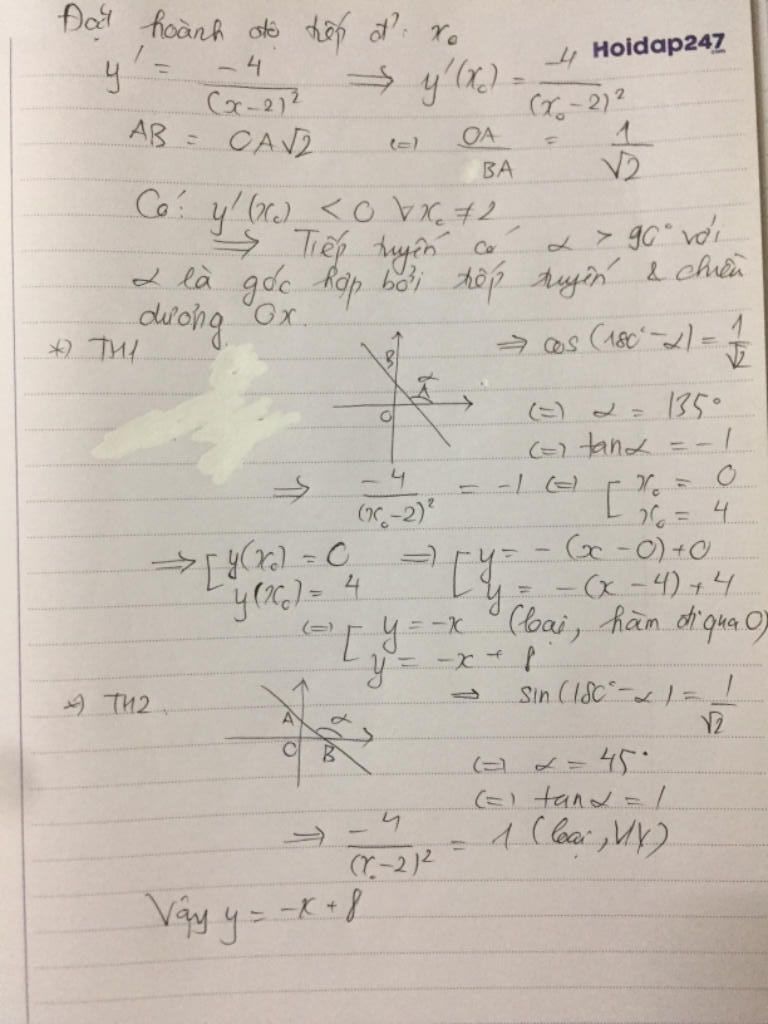 Đặt hoành độ tiếp đ': x₀
Hoidap247
.com
y' = -4/(x-2)² ⟹ y'(x₀) = -4/(x₀-2)²
AB = OA√2 (=) OA/BA = 1/√2
Có: y'(x₀) < 0 ∀x₀ ≠ 2
⟹ Tiếp tuyến có α > 90° với
α là góc hợp bởi tiếp tuyến & chiều
dương Ox.
*) TH1
B
α
A
O
⟹ cos(180°-α) = 1/√2
(=) α = 135°
(=) tanα = -1
⟹ -4/(x₀-2)² = -1 (=) [ x₀ = 0
x₀ = 4
⟹ [ y(x₀) = 0 ⟹ [ y = -(x-0)+0
y(x₀) = 4 y = -(x-4)+4
(=) [ y = -x (loại, hàm đi qua O)
y = -x + 8
*) TH2.
A
α
O
B
⟹ sin(180°-α) = 1/√2
(=) α = 45°
(=) tanα = 1
⟹ -4/(x₀-2)² = 1 (loại, VN)
Vậy y = -x + 8